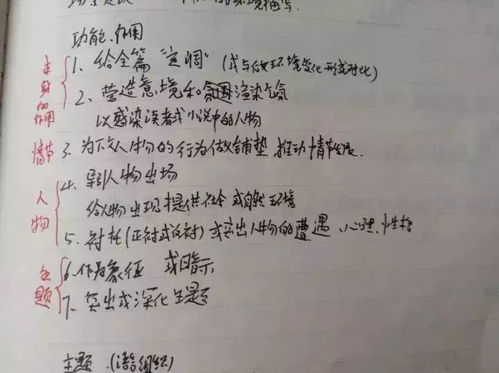 功能.作用
主身的作用
1、给全篇"定调"(或与做环境变化形成对比)
2、营造意境和渲染气氛
以感染读者或小说中的人物
情节 3、为下文人物的行为做铺垫.推动情节发展.
人物
4、引人物出场
给人物出现提供社会或自然环境
5、衬托(正衬或反衬)或突出人物的遭遇、心理、性格
主题
6、作为象征 或暗示
7、突出或深化主题
主题(潜组织)